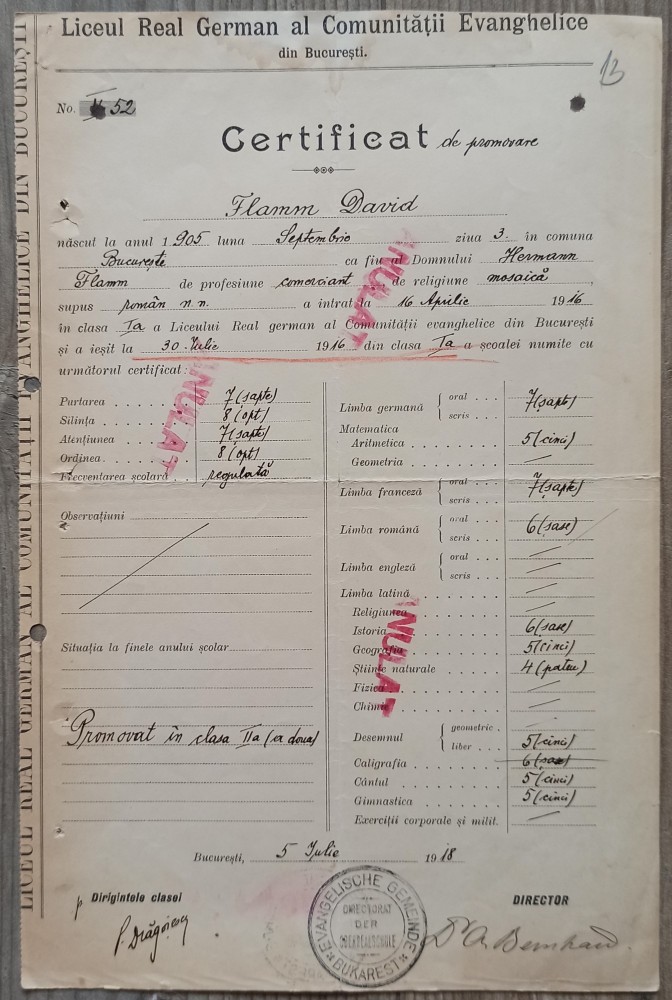 Liceul Real German al Comunității Evanghelice
din București.
13
No. 52
Certificat de promovare
Flamm David
născut la anul 1905 luna Septembrie ziua 3. în comuna
Bucurește ca fiu al Domnului Hermann
Flamm de profesiune comerciant de religiune mosaică,
supus român n.n. a intrat la 16 Aprilie 1916
în clasa Ia a Liceului Real german al Comunității evanghelice din București
și a ieșit la 30 Iulie 1916 din clasa Ia a școalei numite cu
următorul certificat:
ANULAT
ANULAT
Purtarea 7 (șapte)
Silința 8 (opt)
Atențiunea 7 (șapte)
Ordinea 8 (opt)
Frecventarea școlară regulată
Observațiuni
Situația la finele anului școlar
Promovat în clasa IIa (a doua)
Limba germană { oral
scris 7 (șapte)
Matematica
Aritmetica 5 (cinci)
Geometria —
Limba franceză { oral
scris 7 (șapte)
Limba română { oral
scris 6 (șase)
Limba engleză { oral —
scris —
Limba latină —
Religiunea —
Istoria 6 (șase)
Geografia 5 (cinci)
Științe naturale 4 (patru)
Fizica —
Chimie —
ANULAT
Desemnul { geometric
liber 5 (cinci)
Caligrafia 6 (șase)
Cântul 5 (cinci)
Gimnastica 5 (cinci)
Exerciții corporale și milit. —
București, 5 Iulie 1918
p Dirigintele clasei
DIRECTOR
EVANGELISCHE GEMEINDE
BUKAREST
DIRECTORAT
DER
OBERREALSCHULE
Dr A. Bernhard
LICEUL REAL GERMAN AL COMUNITĂȚII EVANGHELICE DIN BUCUREȘTI